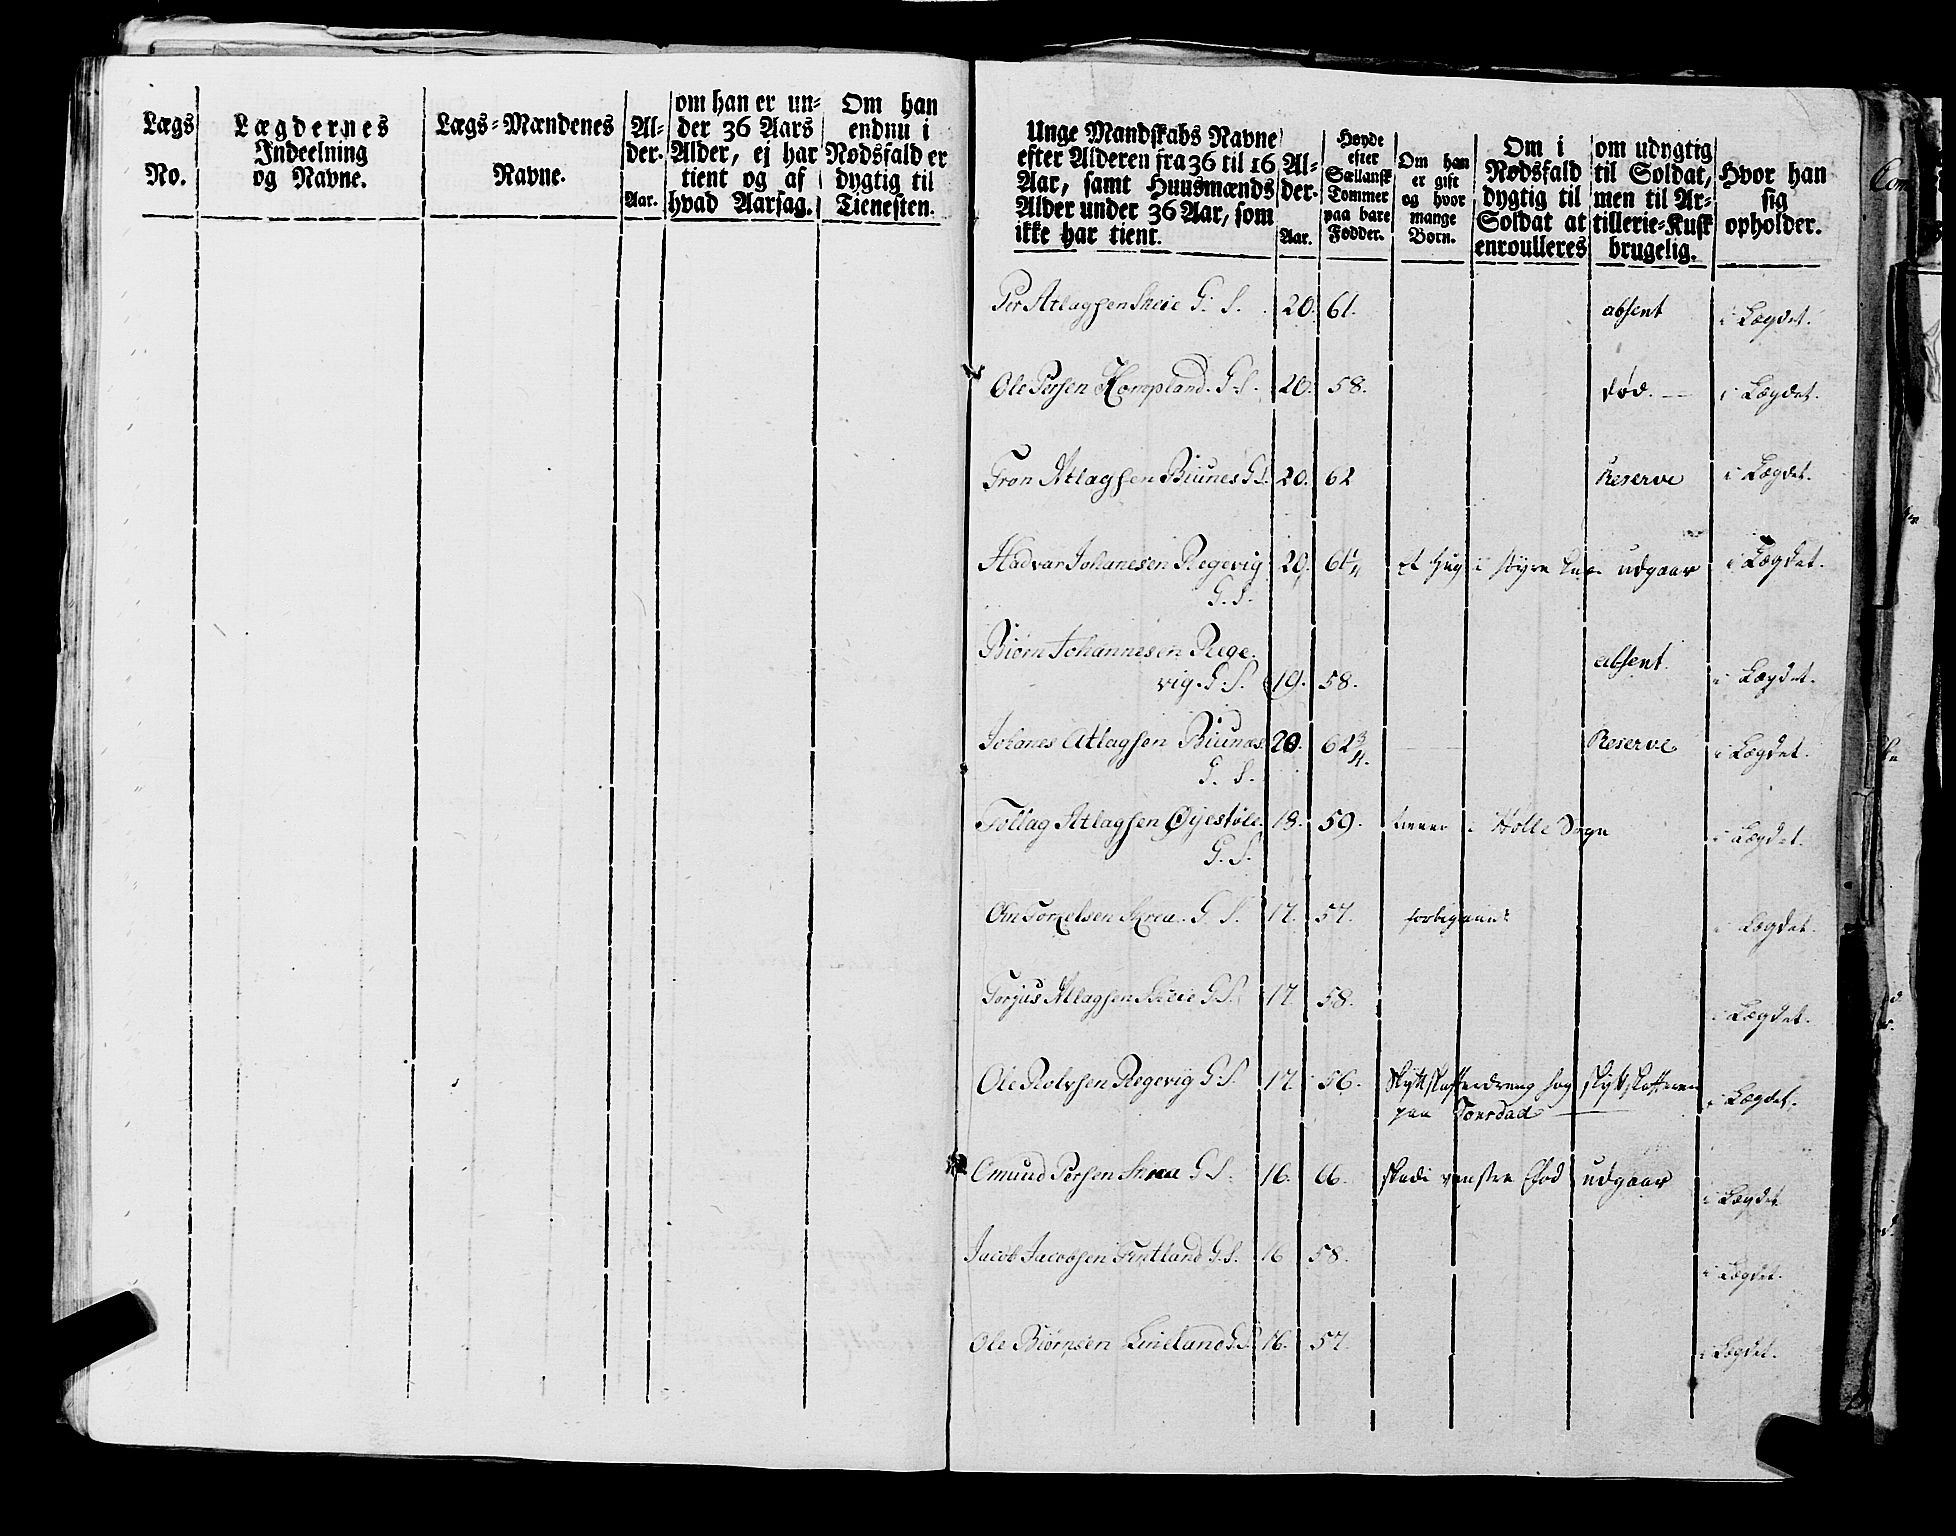 Lægs No.
Lægdernes Indeelning og Navne.
Lægs-Mændenes Navne.
Alder. Aar.
om han er under 36 Aars Alder, ej har tient og af hvad Aarsag.
Om han endnu i Nødsfald er dygtig til Tienesten.
Unge Mandskabs Navne efter Alderen fra 36 til 16 Aar, samt Huusmænds Alder under 36 Aar, som ikke har tient.
Alder. Aar.
Høyde efter Sællansk Tommer paa bare Fødder.
Om han er gift og hvor mange Børn.
Om i Nødsfald dygtig til Soldat at enroulleres
om udygtig til Soldat, men til Artillerie-Kusk brugelig.
Hvor han sig opholder.
Per Atlagsen Skeie G. S. 20. 61. absent i Lægdet.
Ole Persen Kompland. G. S. 20. 58. død. i Lægdet.
Tron Atlagsen Biunes G S. 20. 62 Reserve i Lægdet.
Hadvar Johanesen Regevig 20. 61 1/4 et Hug i styre udgaar i Lægdet.
G. S.
Biørn Johannesen Rege
vig. G. S. 19. 58. absent. i Lægdet.
Johanes Atlagsen Biunæs 20. 62 3/4. Reserve i Lægdet.
G. S.
Tollag Atlagsen Øyestøle. 18. 59. tiener i Holle Sogn i Lægdet.
G. S.
Omtorkelsen Skrea. G. S. 17. 57. forbigaaet i Lægdet.
Torjus Atlagsen Skeie G S. 17. 58. i Lægdet.
Ole Rolvsen Regevig G. S. 17. 56. Skytskafferdreng hos skytskafferen i Lægdet.
paa Tonsdad
Omund Persen Skrea G S. 16. 66. skade i venstre Fod udgaar i Lægdet
Jacob Jacobsen Tintland G. S. 16 58. i Lægdet.
Ole Biørnsen Lineland G S. 16. 57. i Lægdet.